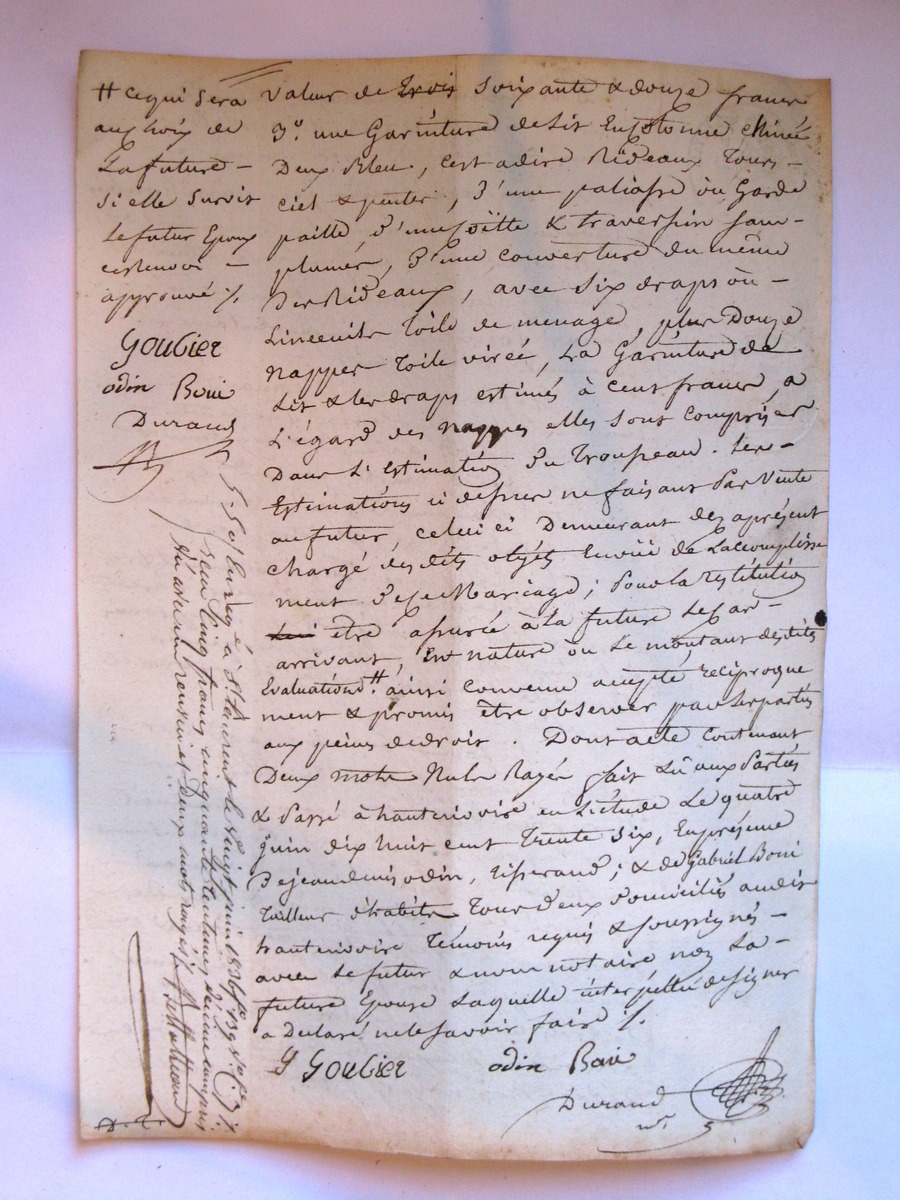 valeur de trois soixante & douze francs
3°. une Garniture de Lit en Cotonne chinée
Deux Bleu, c'est a dire Rideaux Tours-
ciel & pentes, d'une paliasse ou Garde
paille, d'une Coëtte & traversin sans-
plumes, d'une couverture du même
Des Rideaux, avec six draps ou-
Linceuils toile de menage, plus Douze
nappes toile virée, La Garniture de
Lit & les draps estimés à cent francs, a
L'égard des nappes elles sont comprises
Dans L'estimation Du Troupeau. Les-
Estimations ci dessus ne faisant Pas Vente
au futur, celui ci Demeurant dez aprésent
chargé des dits objets Envüe de L'accomplisse
ment De ce Mariage; Pour la restitution
être assurée à la future Le cas-
arrivant, En nature ou Le montant desdites
Evaluations # ainsi convenu accepté réciproque
ment & promis être observer par Les parties
aux peines de droit. Dont acte Contenant
Deux mots Nuls Rayés fait Lû aux Parties
& Passé à hauterivoire en L'étude Le quatre
juin dix huit cent Trente Six, En présence
De jean denis odin, Tisserand; & de Gabriel Boni
Tailleur d'habits Tous Deux Domiciliés audit
hauterivoire Témoins requis & soussignés-
avec Le futur & nous notaire non La-
future Epouse Laquelle interpellée de signer
a Declaré ne le savoir faire ./.
J Goubier odin Boni
Durand
nre
# ce qui sera
au choix de
La future-
si elle survit
Le futur Epoux
ce renvoi-
approuvé ./.
Goubier
odin Boni
Durand
Enreg é à St Laurent le vingt juin 1836 fo 139
cinq francs cinquante centimes décime compris
un renvoi et Deux mots rayés